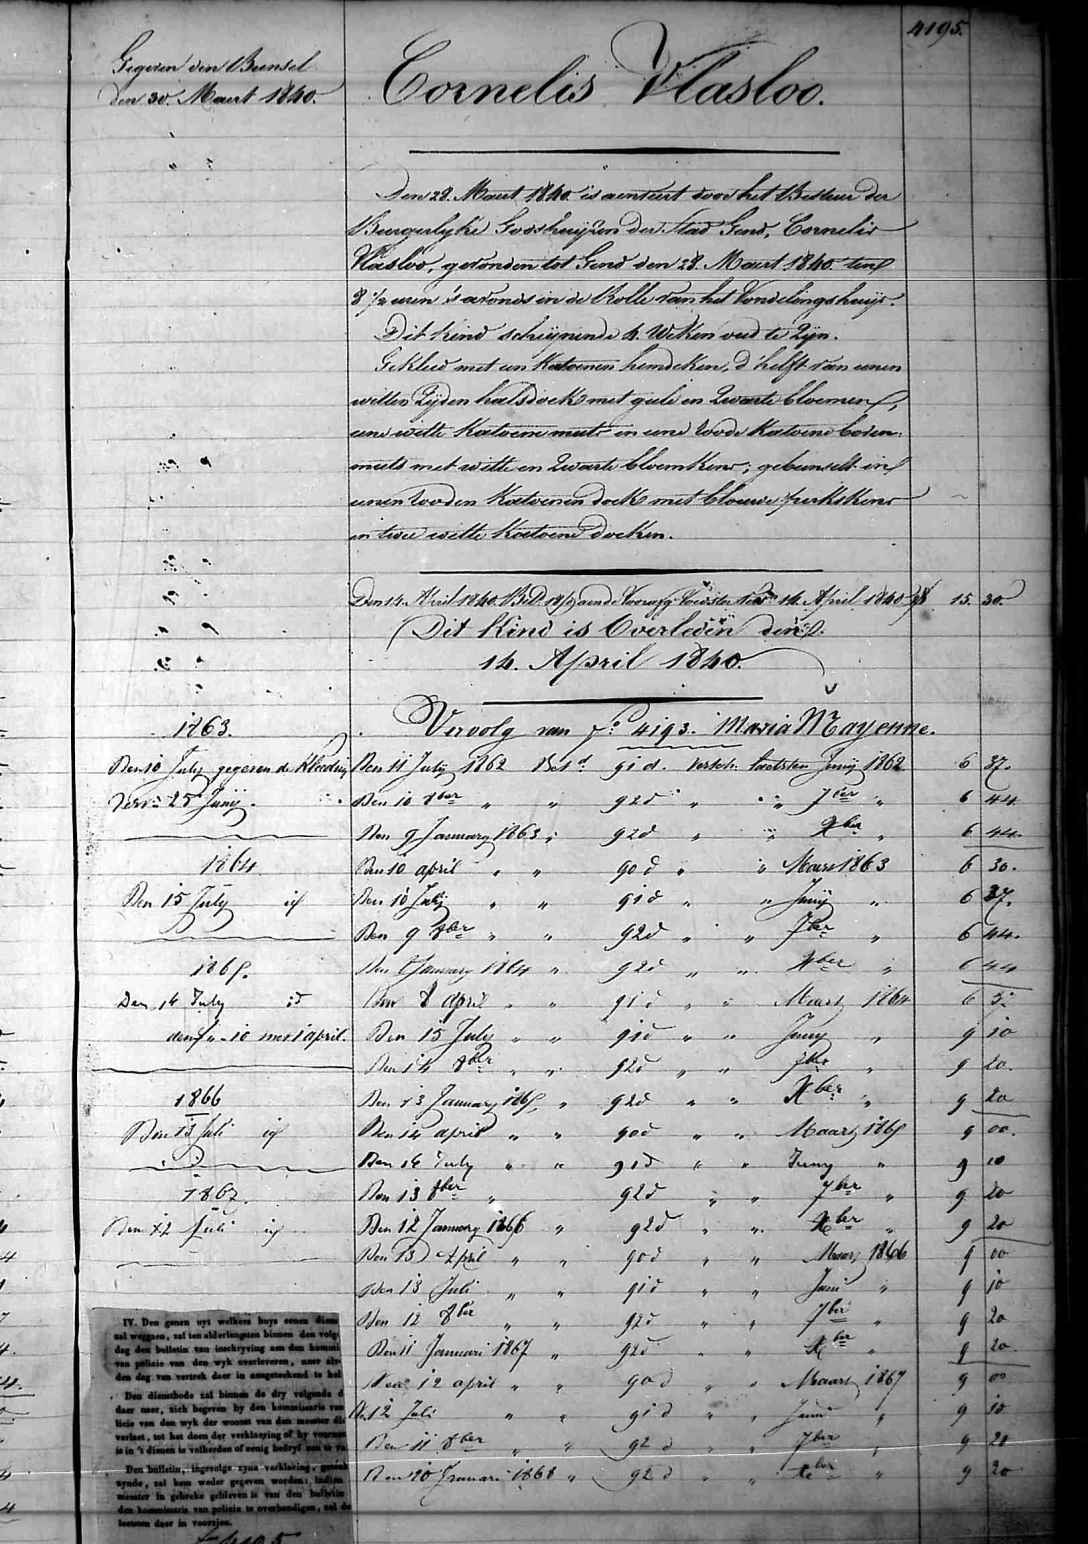 4195.
Gegeven den Bunsel
den 30. Maert 1840.
Cornelis Vlasloo.
Den 28. Maert 1840 is aenveert door het Bestuer der
Burgerlyke Godshuijzen der Stad Gend, Cornelis
Vlasloo, gevonden tot Gend den 28. Maert 1840 ten
8 1/2 uren 's avonds in de Rolle van het Vondelingshuijs.
Dit kind schynende 4. Weken oud te Zyn.
Gekleed met een Katoenen hemdeken, d'helft van eenen
witten Zyden halsdoek met geele en Zwarte bloemen,
eene witte Katoene muts en eene roode Katoene boven
muts met witte en Zwarte bloemkens; gebunselt in
eenen rooden Katoenen doek met blauwe perkskens
en twee witte Katoene doeken.
Den 14. April 1840. Bet. 14. April 1840 15. 30.
Dit Kind is Overleden den
14. April 1840.
Vervolg van f.o 4193. Maria Mayenne.
1863.
Den 10 July gegeven de Kleeding Den 11 July 1862 Betd 91 d. versch. laetsten Juny 1862 6 37.
25 Juny. Den 10 8ber " " 92 d " " 7ber " 6 44
Den 9 January 1863 " 92 d " " Xber " 6 44.
1864. Den 10 april " " 90 d " " Maert 1863 6 30.
Den 15 July id Den 10 July " " 91 d " " Juny " 6 37.
Den 9 8ber " " 92 d " " 7ber " 6 44.
1865. Den 8 January 1864 " 92 d " " Xber " 6 44
Den 14 July id Den 8 april " " 91 d " " Maert 1864 6
10 april. Den 15 July " " 91 d " " Juny " 9 10
Den 14 8ber " " 92 d " " 7ber " 9 20.
1866 Den 13 January 1865 " 92 d " " Xber " 9 20
Den 13 Juli id Den 14 april " " 90 d " " Maart 1865 9 00.
Den 14 July " " 91 d " " Juny " 9 10
1867. Den 13 8ber " 92 d " " 7ber " 9 20
Den 12 Juli id Den 12 January 1866 " 92 d " " Xber " 9 20
Den 13 April " " 90 d " " Maart 1866 9 00
Den 13 Juli " " 91 d " " Juni " 9 10
Den 12 8ber " " 92 d " " 7ber " 9 20
Den 11 Januari 1867 " 92 d " " Xber " 9 20
Den 12 april " " 90 d " " Maart 1867 9 00
Den 12 Juli " " 91 d " " Juni " 9 10
Den 11 8ber " " 92 d " " 7ber " 9 20
Den 10 Januari 1868 " 92 d " " Xber " 9 20
IV. Den genen uyt welkers huys eenen dienst
zal weggaen, zal ten alderlangsten binnen den volg
dag den bulletin van inschryving aen den kommi
van policie van den wyk overleveren, naer al
den dag van vertrek daer in aengeteekend te heb
Den dienstbode zal binnen de dry volgende d
daer naer, zich begeven by den kommissaris van
licie van den wyk der woonst van den meester di
verlaet, tot het doen der verklaering of hy voornem
is in 't dienen te volherden of eenig bedryf aen te va
Den bulletin, ingevolge zyne verklaring, gevisi
zynde, zal hem weder gegeven worden; indien
meester in gebreke gebleven is van den bulletin
den kommissaris van policie te overhandigen, zal de
leetsten daer in voorzien.